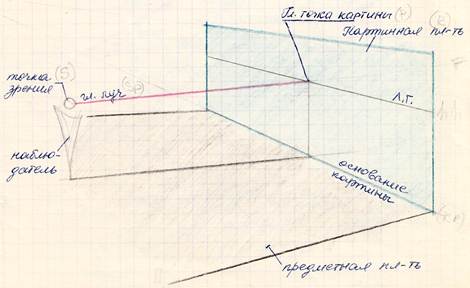 Гл. точка картины (P)
(K)
Картинная пл-ть
точка (S)
зрения
гл. луч (SP)
Л.Г.
наблю-
датель
основание
картины
предметная пл-ть